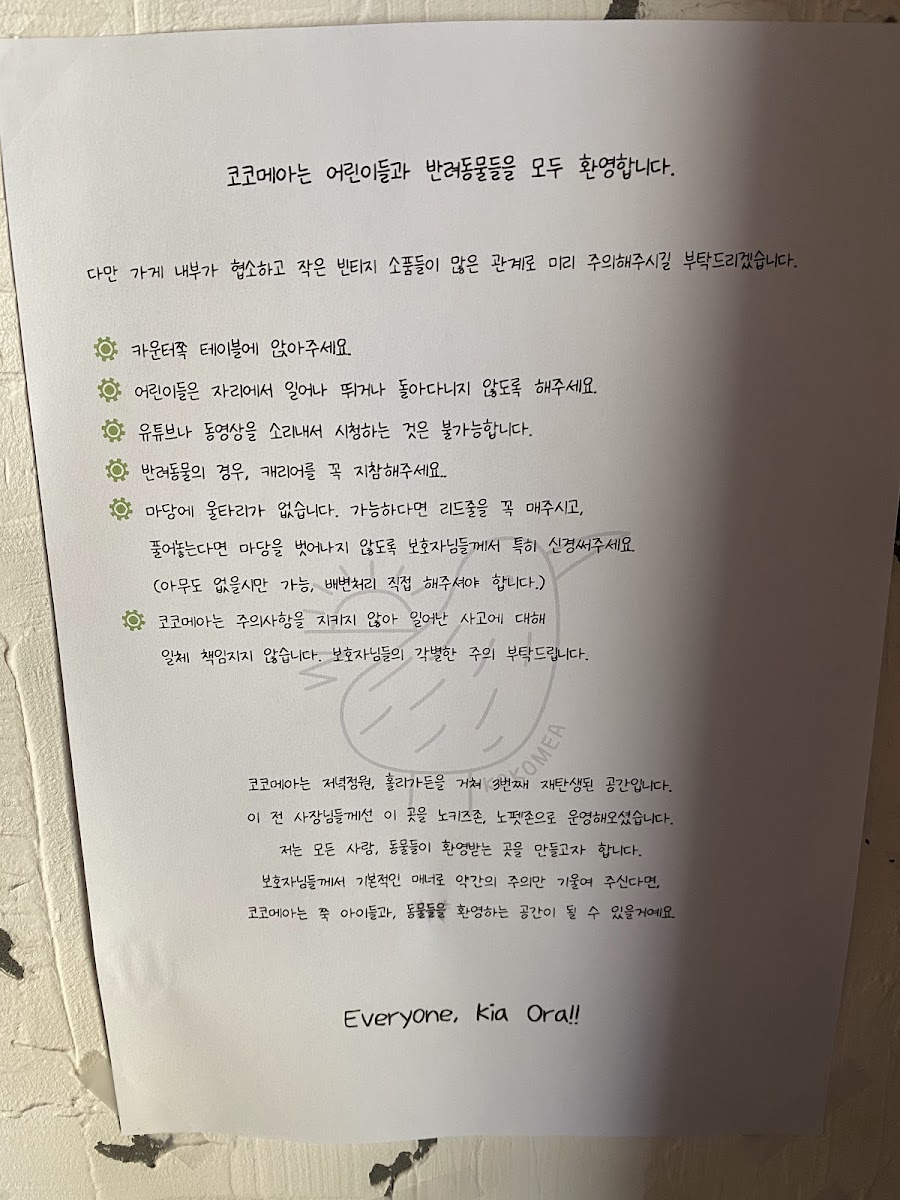 코코메아는 어린이들과 반려동물들을 모두 환영합니다.
다만 가게 내부가 협소하고 작은 빈티지 소품들이 많은 관계로 미리 주의해주시길 부탁드리겠습니다.
카운터쪽 테이블에 앉아주세요.
어린이들은 자리에서 일어나 뛰거나 돌아다니지 않도록 해주세요.
유튜브나 동영상을 소리내서 시청하는 것은 불가능합니다.
반려동물의 경우, 캐리어를 꼭 지참해주세요..
마당에 울타리가 없습니다. 가능하다면 리드줄을 꼭 매주시고,
풀어놓는다면 마당을 벗어나지 않도록 보호자님들께서 특히 신경써주세요.
(아무도 없을시만 가능, 배변처리 직접 해주셔야 합니다.)
코코메아는 주의사항을 지키지 않아 일어난 사고에 대해
일체 책임지지 않습니다. 보호자님들의 각별한 주의 부탁드립니다.
KOKOMEA
코코메아는 저녁정원, 홀리가든을 거쳐 3번째 재탄생된 공간입니다.
이 전 사장님들께선 이 곳을 노키즈존, 노펫존으로 운영해오셨습니다.
저는 모든 사람, 동물들이 환영받는 곳을 만들고자 합니다.
보호자님들께서 기본적인 매너로 약간의 주의만 기울여 주신다면,
코코메아는 쭉 아이들과, 동물들을 환영하는 공간이 될 수 있을거예요.
Everyone, Kia Ora!!